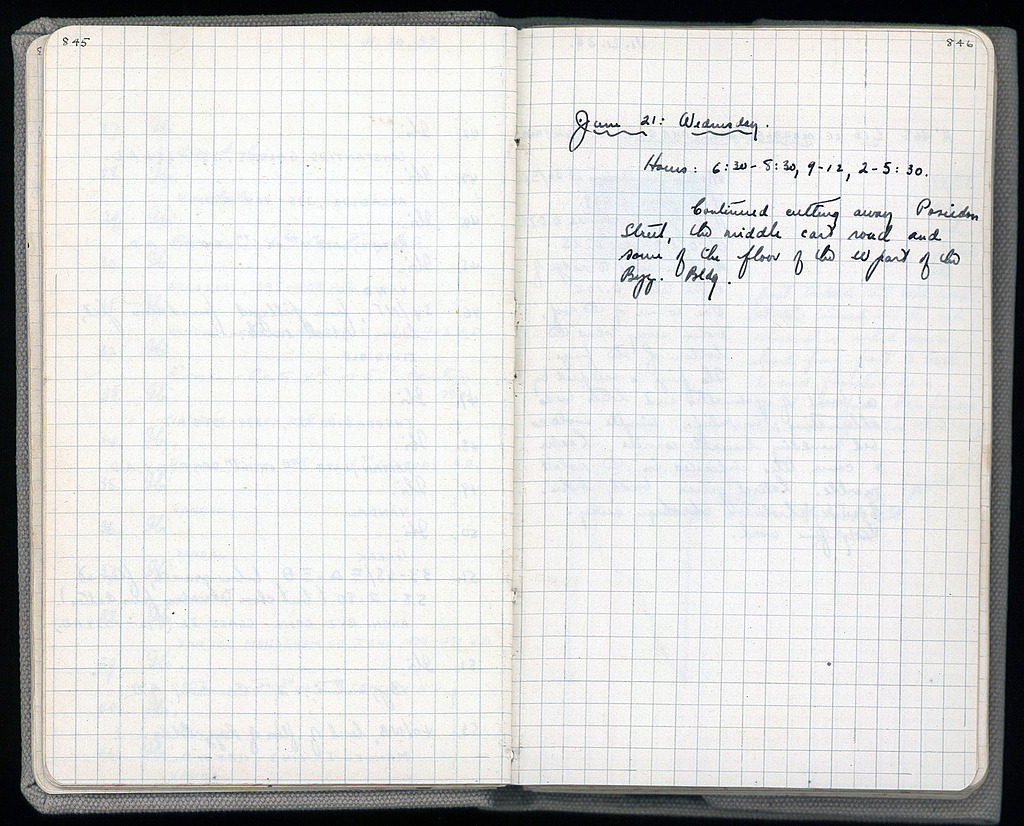 845
846
June 21: Wednesday.
Hours: 6:30-8:30, 9-12, 2-5:30.
Continued cutting away Poseidon
Street, the middle cart road and
some of the floor of the W part of the
Byz. Bldg.